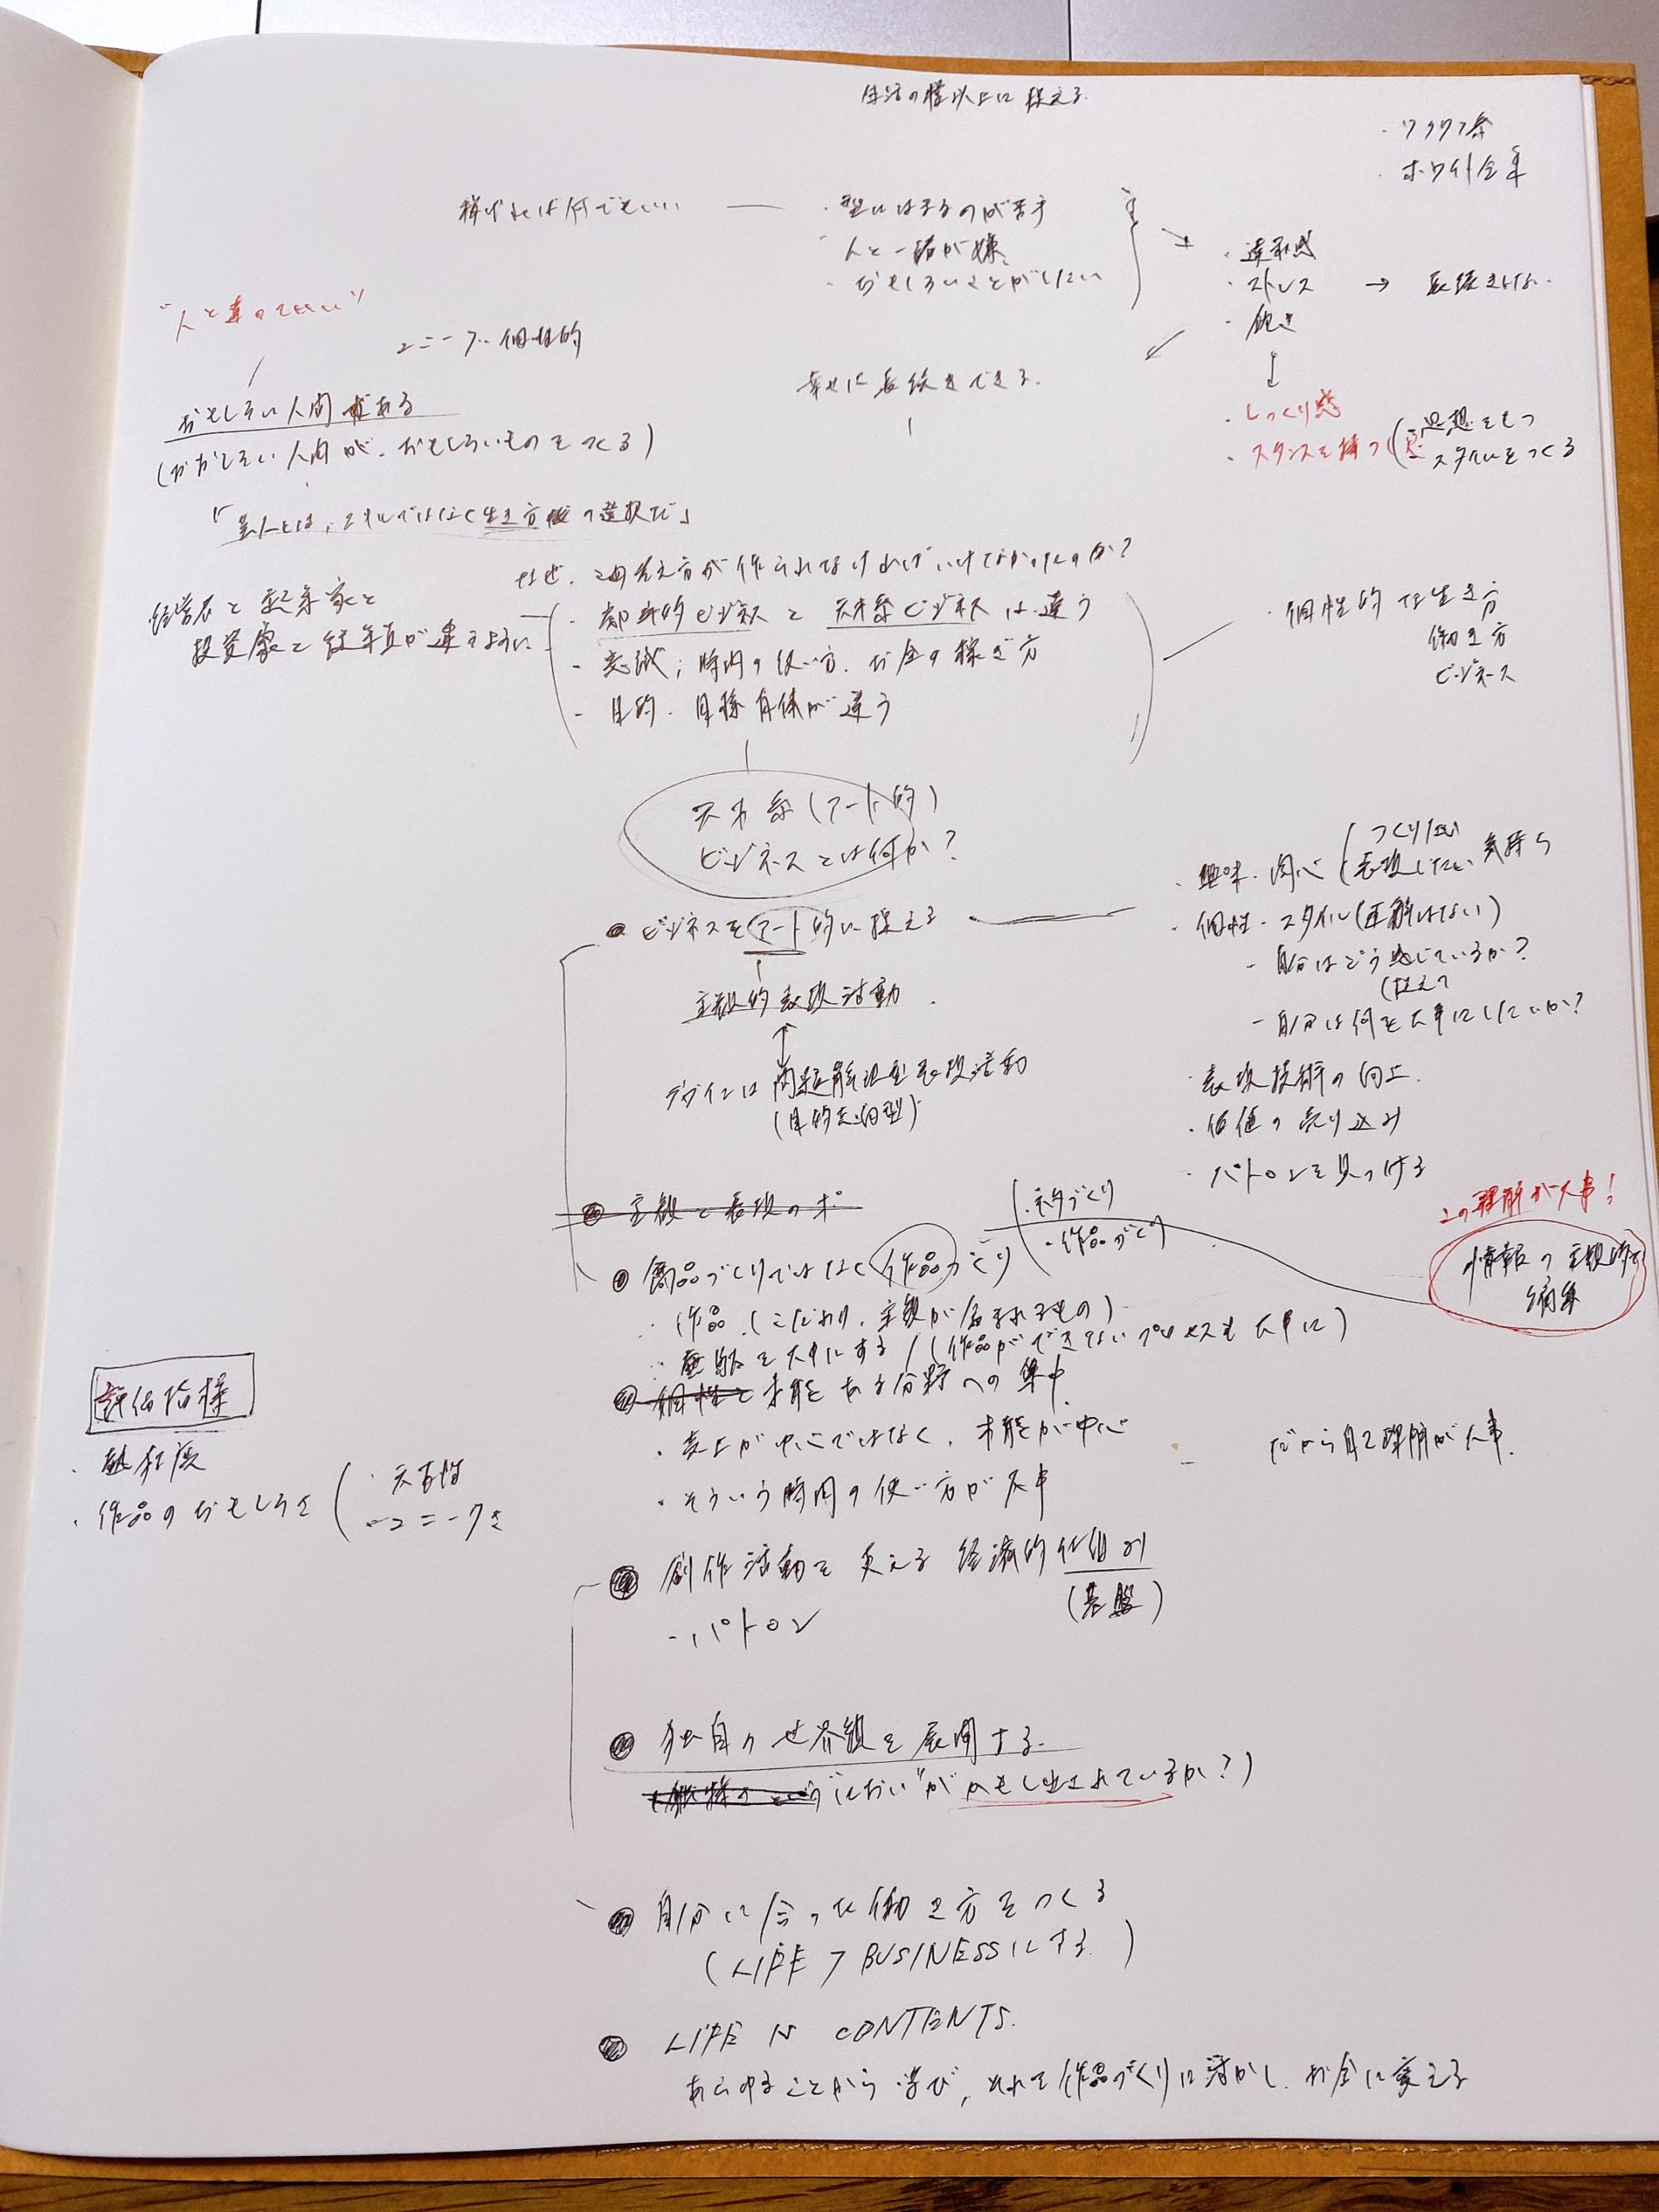 生活の糧以上に捉える
・ワクワク系
・ホワイト企業
稼げれば何でもいい
・型にはまるのが苦手
・人と一緒が嫌
・おもしろいことがしたい
・違和感
・ストレス → 長続きしない
・飽き
幸せに長続きできる
・しっくり感
・スタンスを持つ
・思想をもつ
・スタイルをつくる
"人と違っていい"
ユニーク・個性的
おもしろい人間である
(おかしい人間が、おもしろいものをつくる)
なぜ、この考え方が作られなければいけなかったのか?
経営者と起業家と
投資家と従業員が違うように
・都市的ビジネスと天才系ビジネスは違う
・意識;時間の使い方、お金の稼ぎ方
・目的・目標自体が違う
・個性的な生き方
働き方
ビジネス
天才系(アート的)
ビジネスとは何か?
● ビジネスをアート的に捉える
主観的表現活動
デザインは問題解決型表現活動
(目的志向型)
・興味・関心
つくりたい
表現したい 気持ち
・個性・スタイル(正解はない)
- 自分はどう感じているか?
(捉えて
- 自分は何を大事にしたいか?
・表現技術の向上
・価値の売り込み
・パトロンを見つける
主観と表現の
● 商品づくりではなく作品づくり
・作品づくり
この理解が大事!
情報の主観的
編集
・作品(こだわり、主観が含まれるもの)
・無駄を大事にする/(作品ができないプロセスも大事に)
● 個性と才能ある分野への集中
・売上が中心ではなく、才能が中心
・そういう時間の使い方が大事
だから自己理解が大事
評価指標
・熱狂度
・作品のおもしろさ
・天才性
・ユニークさ
● 創作活動を支える経済的仕組み
(基盤)
- パトロン
● 独自の世界観を展開する
"におい"がかもし出されているか?)
● 自分に合った働き方をつくる
(LIFE > BUSINESSにする)
● LIFE IS CONTENTS.
あらゆることから学び、それを作品づくりに活かし、お金に変える